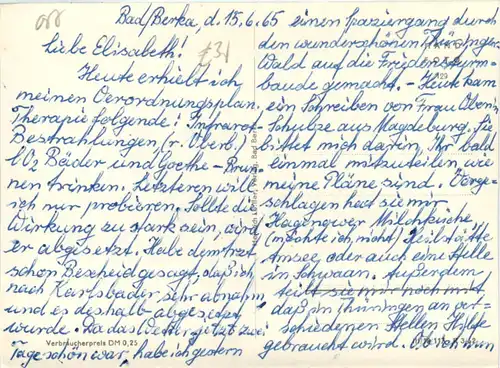 Bad Berka, d. 15.6.65
Liebe Elisabeth!
Heute erhielt ich
meinen Verordnungsplan.
Therapie folgende: Infrarot-
Bestrahlungen (r. Oberb.)
CO2 Bäder und Goethe-Brun-
nen trinken. Letzteren will
ich nur probieren. Sollte die
Wirkung zu stark sein, wird
er abgesetzt. Habe dem Arzt
schon Bescheid gesagt, daß ich
nach Karlsbader sehr abnahm
und es deshalb abgesetzt
wurde. Da das Wetter jetzt zwei
Tage schön war, habe ich gestern
einen Spaziergang durch
den wunderschönen Thüringer
Wald auf die
baude gemacht. - Heute kam
ein Schreiben von Frau Oberin
Schulze aus Magdeburg. Sie
bittet mich darin, Ihr bald
einmal mitzuteilen, wie
meine Pläne sind. Vorge-
schlagen hat sie mir
Milchküche
(möchte ich nicht) Heilstätte
Amsee, oder auch eine Stelle
in Schwaan. Außerdem
teilt sie mir noch mit,
daß in Thüringen an ver-
schiedenen Stellen Hilfe
gebraucht wird. Ob ich nun
Verbraucherpreis DM 0,25